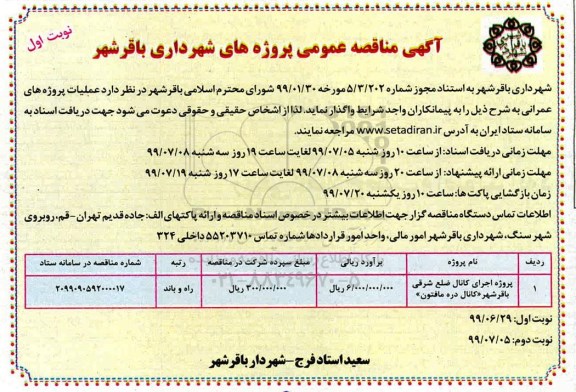 نوبت اول
آگهی مناقصه عمومی پروژه های شهرداری باقرشهر
شهرداری باقرشهر به استناد مجوز شماره ۵/۳/۲۰۲ مورخه ۹۹/۰۱/۳۰ شورای محترم اسلامی باقرشهر در نظر دارد عملیات پروژه های
عمرانی به شرح ذیل را به پیمانکاران واجد شرایط واگذار نماید. لذا از اشخاص حقیقی و حقوقی دعوت می شود جهت دریافت اسناد به
سامانه ستاد ایران به آدرس www.setadiran.ir مراجعه نمایند.
مهلت زمانی دریافت اسناد: از ساعت ۱۰ روز شنبه ۹۹/۰۷/۰۵ لغایت ساعت ۱۹ روز سه شنبه ۹۹/۰۷/۰۸
مهلت زمانی ارائه پیشنهاد: از ساعت ۲۰ روز سه شنبه ۹۹/۰۷/۰۸ لغایت ساعت ۱۷ روز شنبه ۹۹/۰۷/۱۹
زمان بازگشایی پاکت ها: ساعت ۱۰ روز یکشنبه ۹۹/۰۷/۲۰
اطلاعات تماس دستگاه مناقصه گزار جهت اطلاعات بیشتر در خصوص اسناد مناقصه و ارائه پاکتهای الف: جاده قدیم تهران - قم، روبروی
شهر سنگ، شهرداری باقرشهر امور مالی، واحد امور قراردادها شماره تماس ۵۵۲۰۳۷۱۰ داخلی ۳۲۴
ردیف نام پروژه برآورد ریالی مبلغ سپرده شرکت در مناقصه رتبه شماره مناقصه در سامانه ستاد
۱ پروژه اجرای کانال ضلع شرقی باقرشهر «کانال دره مافتون» ۶/۰۰۰/۰۰۰/۰۰۰ ریال ۳۰۰/۰۰۰/۰۰۰ ریال راه و باند ۲۰۹۹۰۹۰۵۹۲۰۰۰۰۱۷
نوبت اول: ۹۹/۰۶/۲۹
نوبت دوم: ۹۹/۰۷/۰۵
سعید استاد فرج - شهردار باقرشهر
۰۲۱-۸۸۳۴۹۶۷۰-۵